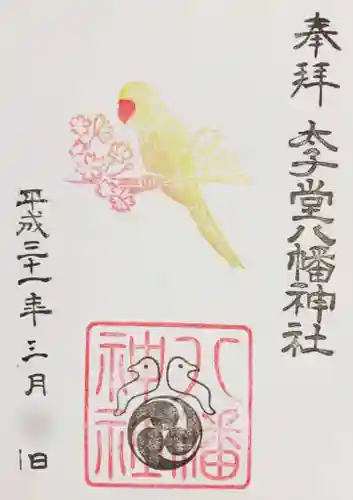 奉拝
太子堂八幡神社
平成三十一年三月
日
八幡
神社